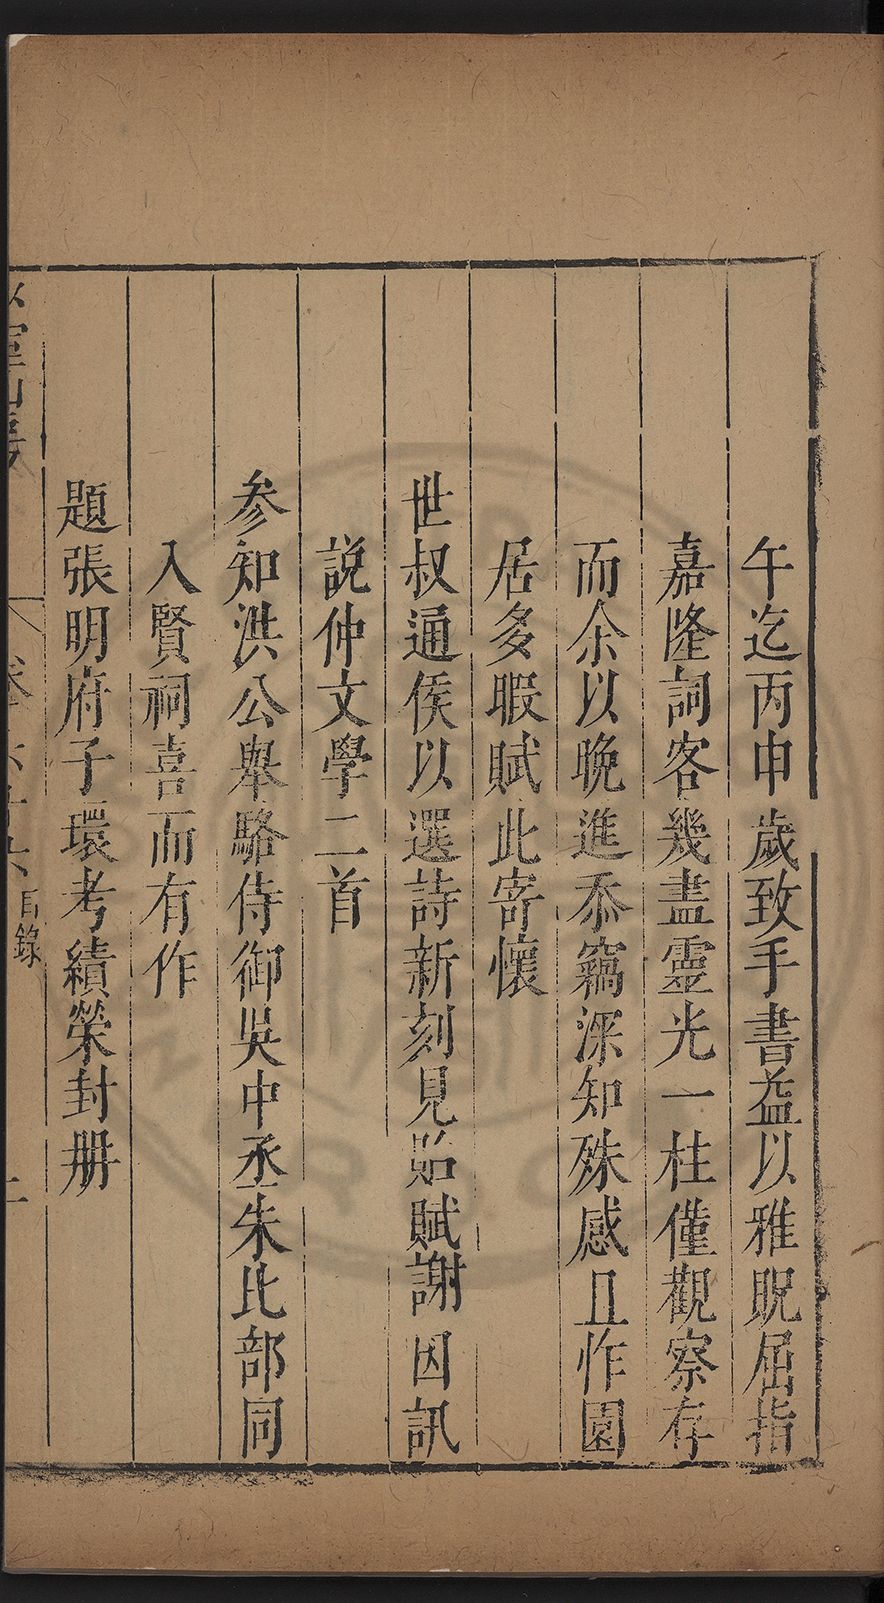 午迄丙申歲致手書益以雅貺屈指
嘉隆詞客幾盡靈光一柱僅觀察存
而余以晚進忝竊深知殊感且怍園
居多暇賦此寄懷
世叔通侯以選詩新刻見貽賦謝因訊
說仲文學二首
參知洪公舉駱侍御吳中丞朱比部同
入賢祠喜而有作
題張明府子環考績榮封册
目錄